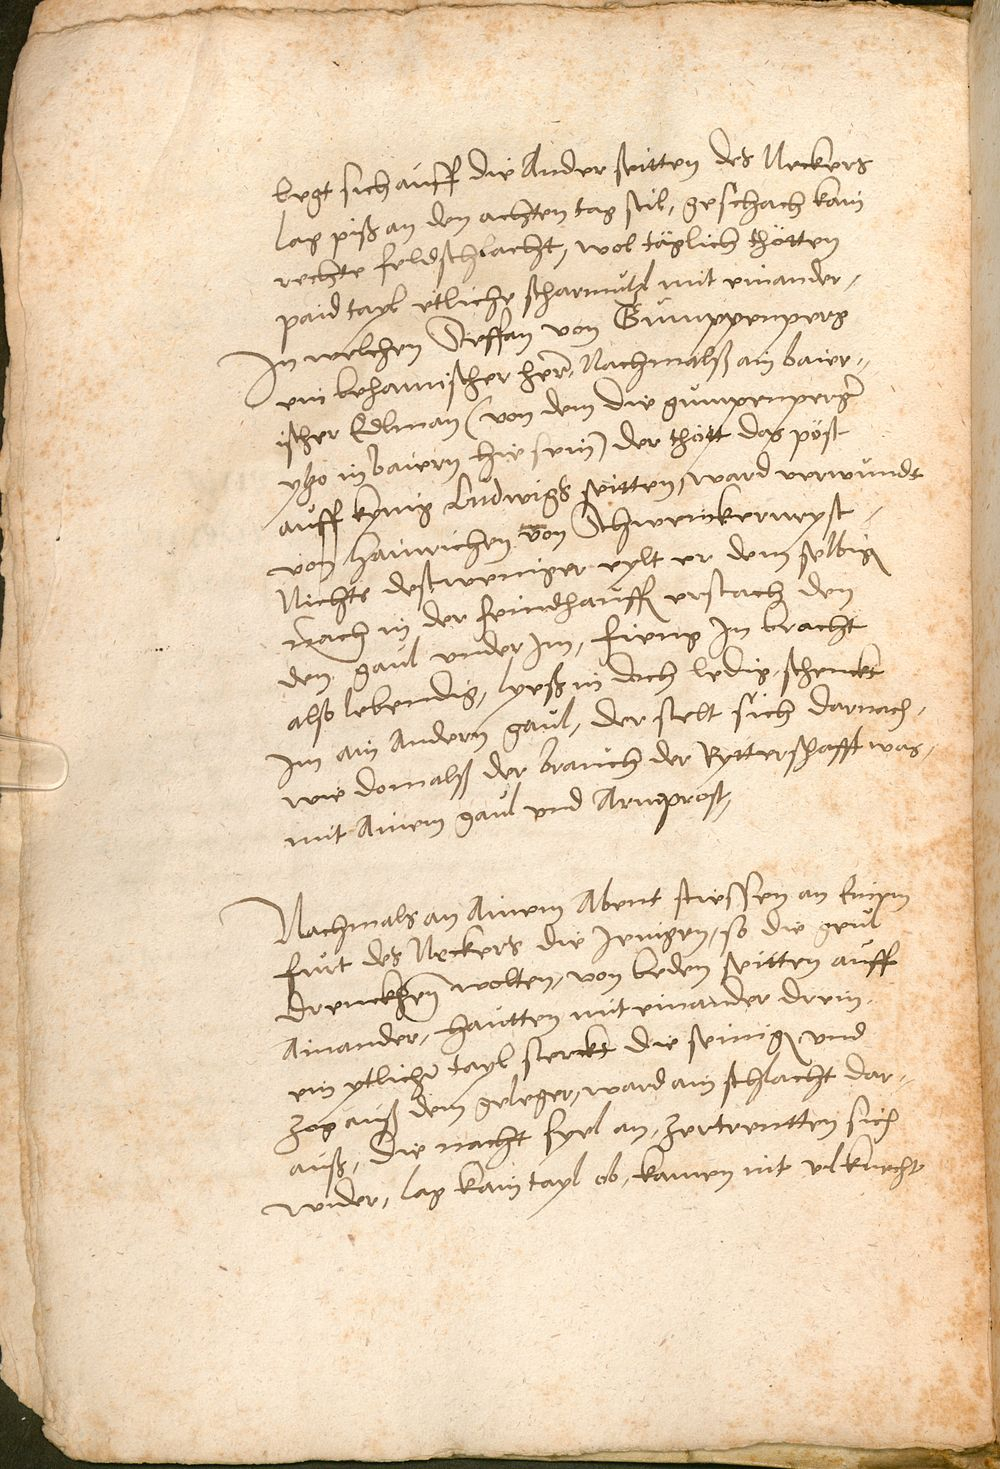 legt sich auff die Ander seitten des Neckers
lag piß an den achten tag stil, geschach kain
rechte feldschlacht, wol täglich thötten
paid tayl etliche scharmützl mit einander,
In welchen Steffan von Gumppenperg
ein behamischer herr, Nachmalß ain baier-
ischer Edlman (von dem die gumpenperger
ytzo in baiern hie sein) der thött das pöst
auff kynig Ludwigs seitten, ward verwundt
von Hainrichen von Schwenckenryst,
Nichts destweniger eylt er dem selbigen
nach in der feindt hauffen erstach den
den gaul under Im, fieng In bracht
also lebendig, lyeß in doch ledig, schenckt
Im ain Andern gaul, der stelt sich darnach,
wie domalß der brauch der Rytterschafft was,
mit Ainem gaul und Armprost,
Nachmals an Ainem Abent stiessen an Einem
furt des Neckers die Jenigen, so die geul
drencken wolten, von beden seitten auff
Ainander, hautten mit einander drein,
ein ytlicher tayl sterckt die seinigen und
zog auß dem geleger, ward ain schlacht dar-
auß, die nacht fyel an, zertrentten sich
wider, lag kain tayl ob, kamen nit vl knecht